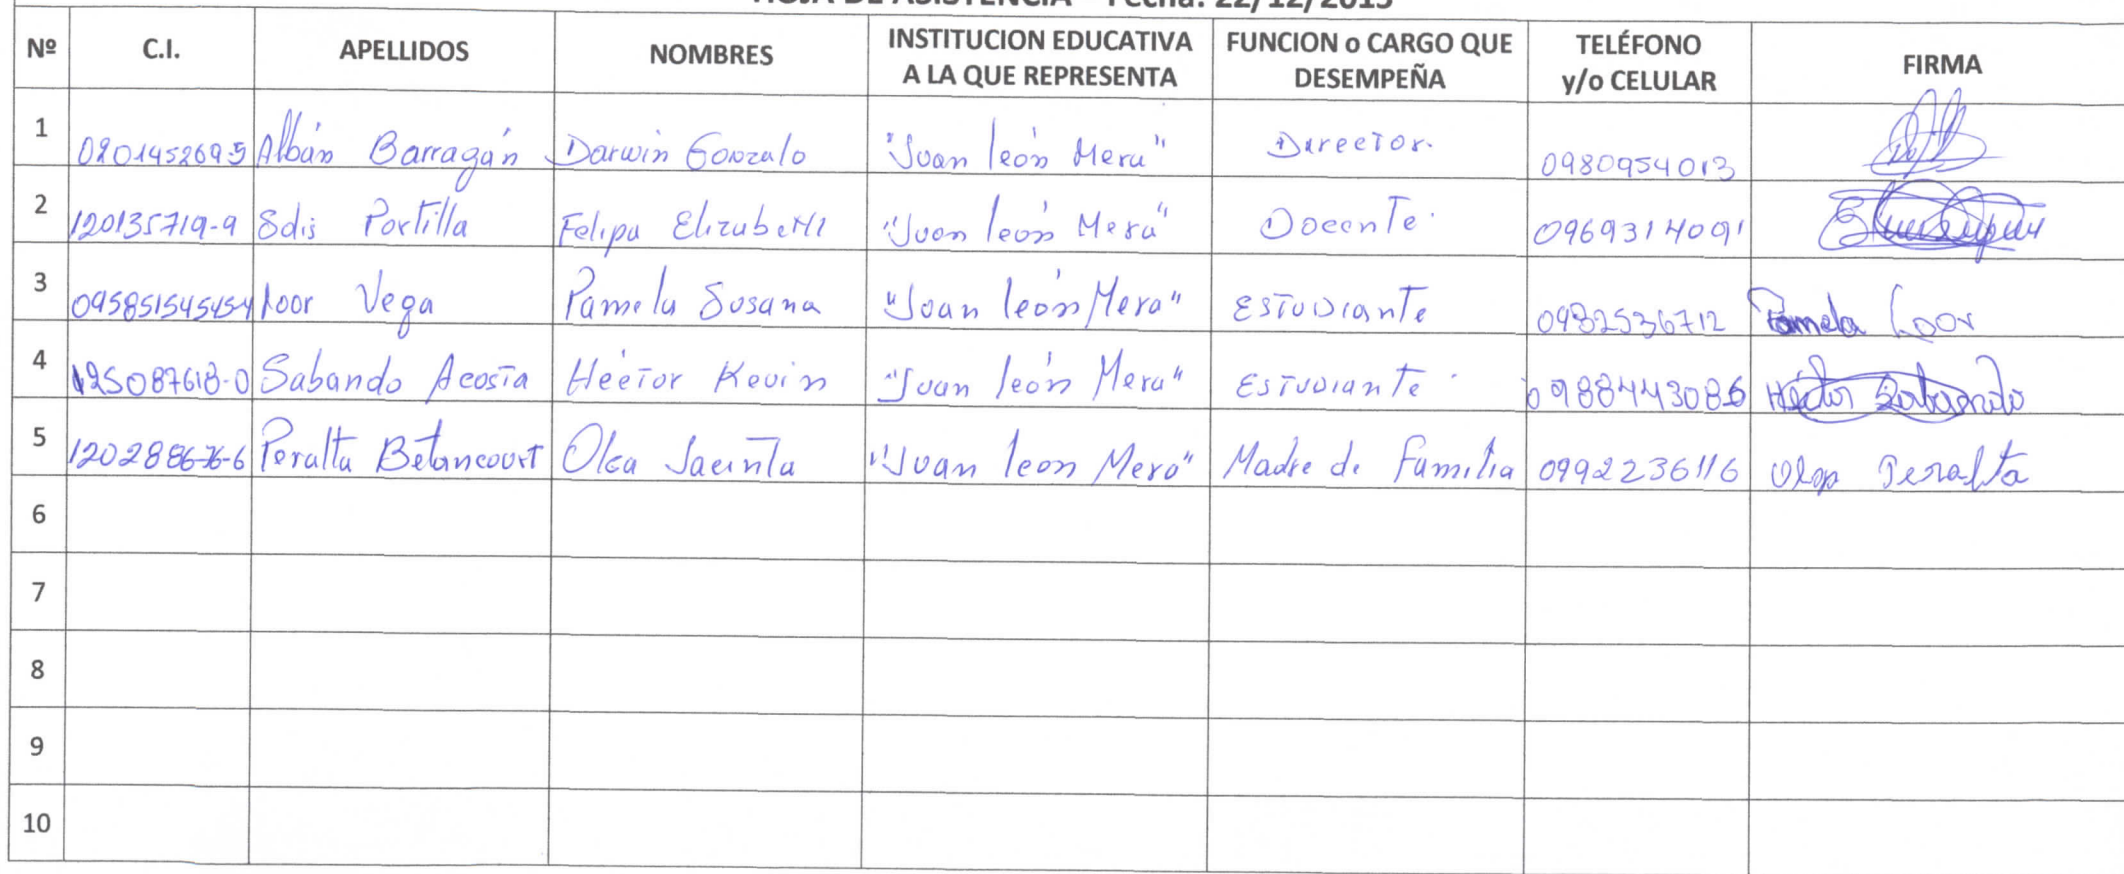 HOJA DE ASISTENCIA - Fecha: 22/12/2015
Nº C.I. APELLIDOS NOMBRES INSTITUCION EDUCATIVA A LA QUE REPRESENTA FUNCION o CARGO QUE DESEMPEÑA TELÉFONO y/o CELULAR FIRMA
1 020145269-5 Albán Barragán Darwin Gonzalo "Juan león Mera" Director. 0980954013
2 120135719-9 Portilla Felipa Elizabeth "Juan león Mera" Docente. 0969314091
3 095851545454 loor Vega Pamela Susana "Juan león Mera" Estudiante 0982536712 Pamela Loor
4 125087618-0 Sabando Acosta Héctor Kevin "Juan león Mera" Estudiante. 0988443086 Héctor Sabando
5 Peralta Betancourt Olga Jacinta "Juan leon Mera" Madre de Familia 0992236116 Olga Peralta
6
7
8
9
10